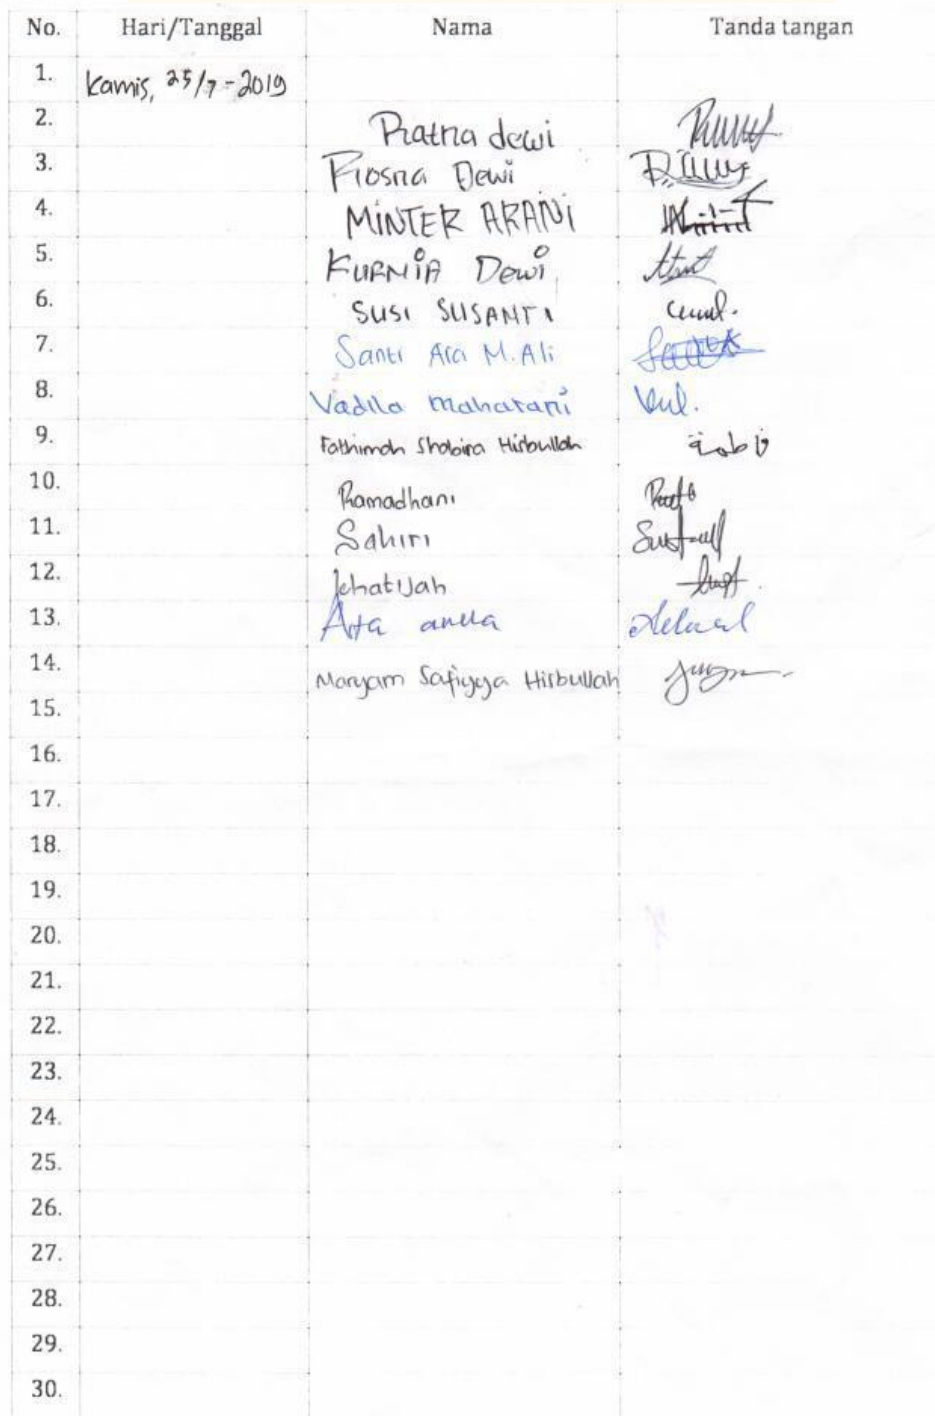 No. Hari/Tanggal Nama Tanda tangan
1. Kamis, 25/7-2019
2. Ratna dewi
3. Rosna Dewi
4. MINTER ARANI
5. KURNIA Dewi
6. SUSI SUSANTI
7. Santi Ara M.Ali
8. Vadila Maharani
9. Fathimah Shabira Hisbullah فاطمة
10. Ramadhani
11. Sahiri
12. khatijah
13. Arta
14. Maryam Safiyya Hisbullah
15.
16.
17.
18.
19.
20.
21.
22.
23.
24.
25.
26.
27.
28.
29.
30.